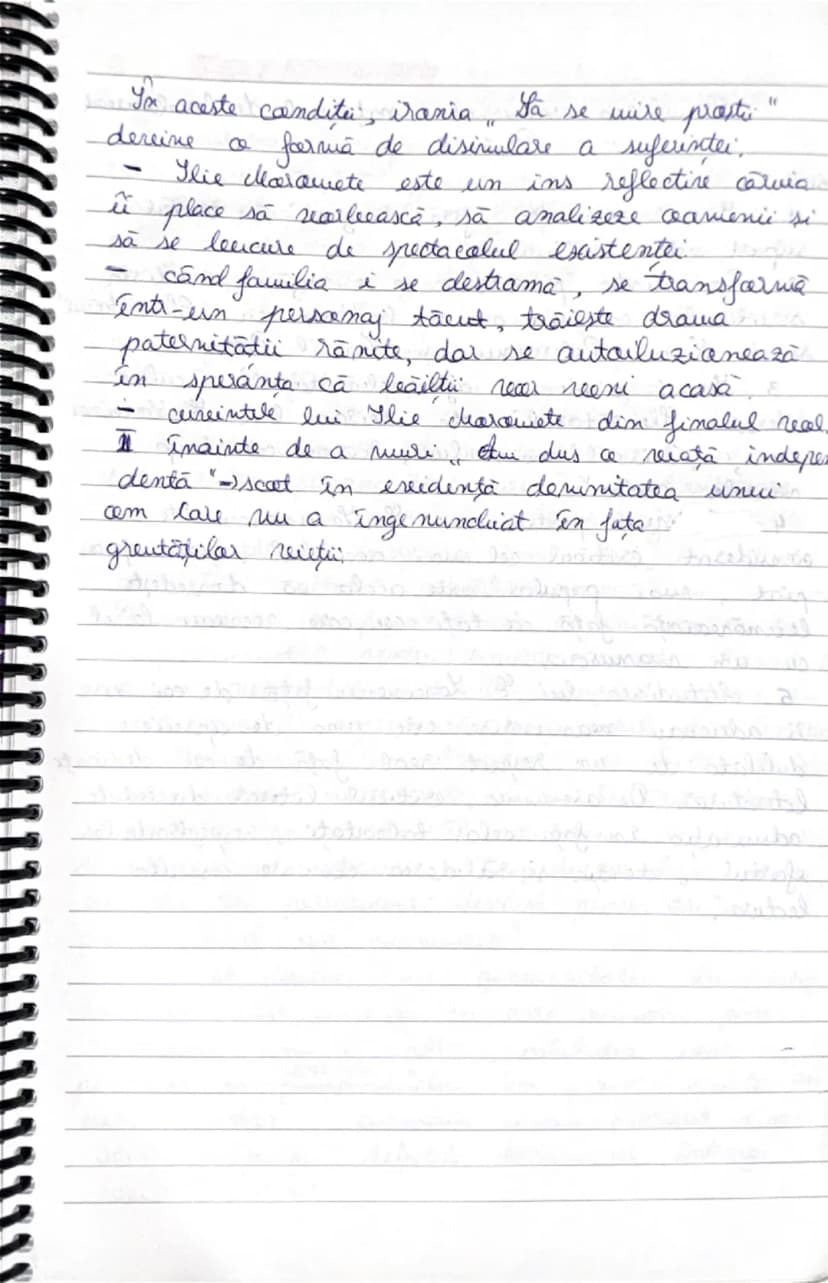 În aceste condiții, ironia „Să se mire proștii"
devine o formă de disimulare a suferinței.
- Ilie Moromete este un ins reflectiv căruia
îi place să vorbească, să analizeze oamenii și
să se bucure de spectacolul existenței.
- când familia i se destramă, se transformă
într-un personaj tăcut, trăiește drama
paternității rănite, dar se autoiluzionează
în speranța că băieții vor veni acasă.
- cuvintele lui Ilie Moromete din finalul vol.
II înainte de a muri „Am dus o viață indepen
dentă" → scot în evidență demnitatea unui
om care nu a îngenunchiat în fața
greutăților vieții.